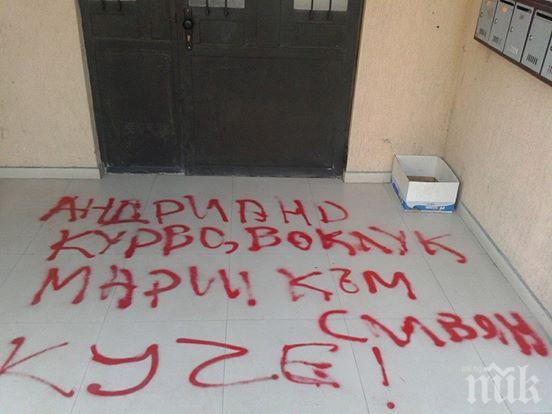 АНДРИАНО
КУРВО, БОКЛУК
МАРИЦ! КЪМ
СИВЯН
КУЧЕ!
ПИК